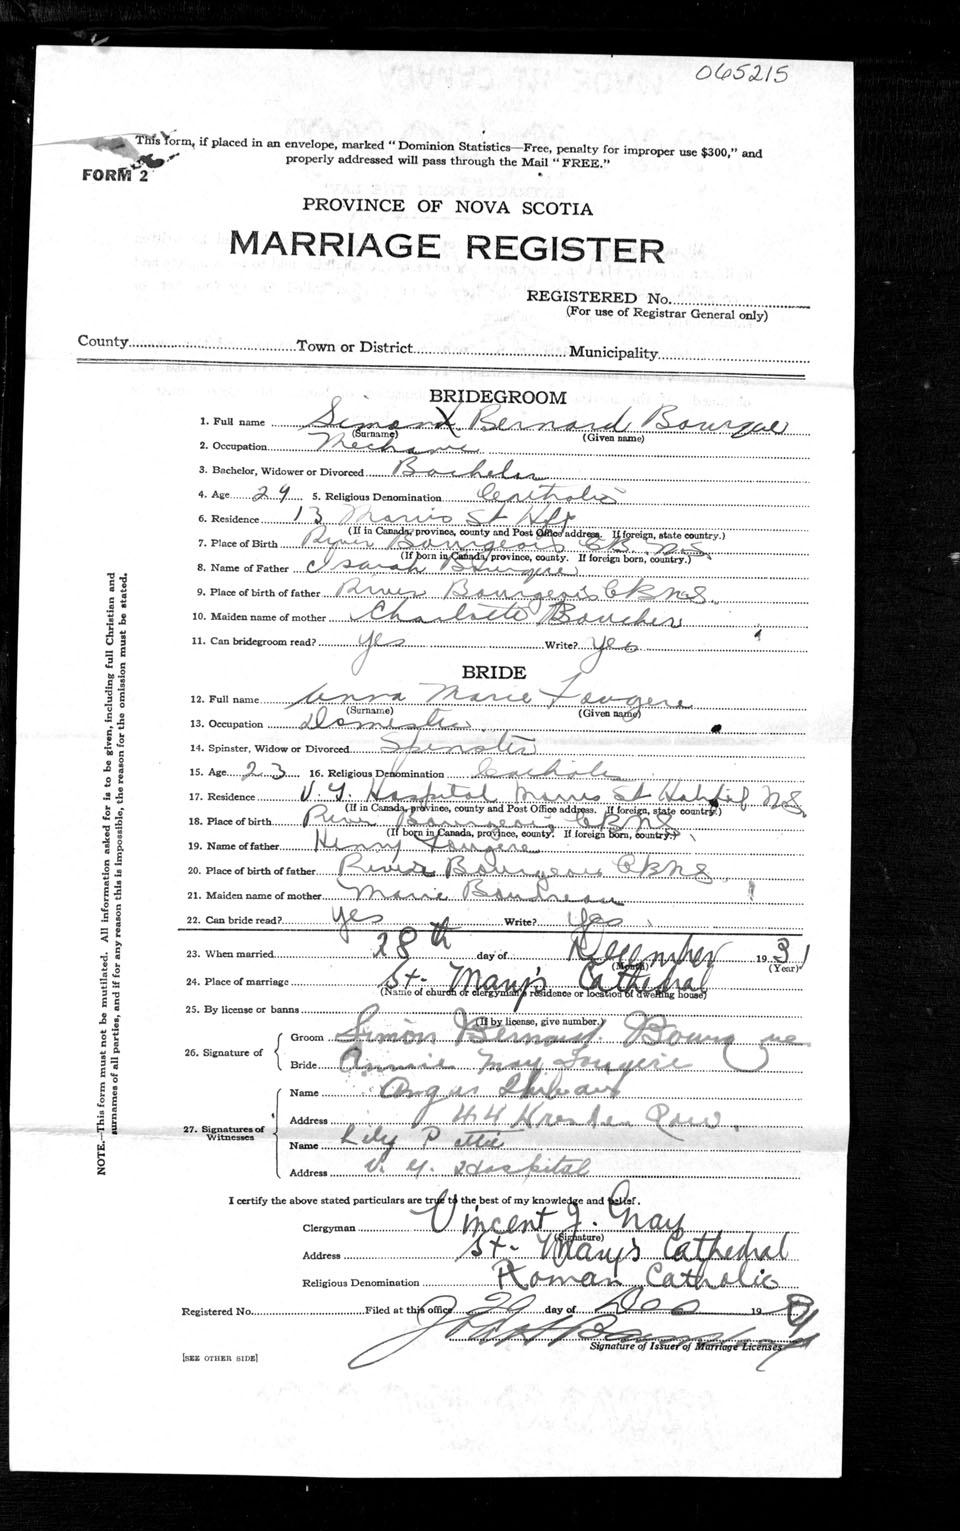 065215
This form, if placed in an envelope, marked "Dominion Statistics—Free, penalty for improper use $300," and
properly addressed will pass through the Mail "FREE."
FORM 2
PROVINCE OF NOVA SCOTIA
MARRIAGE REGISTER
REGISTERED No.
(For use of Registrar General only)
County Town or District Municipality
BRIDEGROOM
1. Full name Simon X Bernard Bourque
(Surname) (Given name)
2. Occupation Mechanic
3. Bachelor, Widower or Divorced Bachelor
4. Age 29 5. Religious Denomination Catholic
6. Residence 13 Morris St Hfx
(If in Canada, province, county and Post Office address. If foreign, state country.)
7. Place of Birth River Bourgeois C.B. N.S.
(If born in Canada, province, county. If foreign born, country.)
8. Name of Father Isarah Bourque
9. Place of birth of father River Bourgeois C B N S.
10. Maiden name of mother Charlotte Boucher
11. Can bridegroom read? yes Write? yes
BRIDE
12. Full name Anna Marie Fougere
(Surname) (Given name)
13. Occupation Domestic
14. Spinster, Widow or Divorced Spinster
15. Age 23 16. Religious Denomination Catholic
17. Residence V. G. Hospital Morris St N.S.
(If in Canada, province, county and Post Office address. If foreign, state country.)
18. Place of birth River Bourgeois C B N S
(If born in Canada, province, county. If foreign born, country.)
19. Name of father Henry Fougere
20. Place of birth of father River Bourgeois C B N S.
21. Maiden name of mother Marie Boudreau
22. Can bride read? yes Write? yes
23. When married 28th day of December 1931
(Month) (Year)
24. Place of marriage St. Mary's Cathedral
(Name of church or clergyman's residence or location of dwelling house)
25. By license or banns
(If by license, give number.)
26. Signature of
Groom Simon Bernard Bourque
Bride Annie May Fougere
27. Signatures of Witnesses
Name Angus
Address 44 Row.
Name Lily
Address V. G. Hospital
I certify the above stated particulars are true to the best of my knowledge and belief.
Clergyman Vincent J. Gray
(Signature)
Address St. Mary's Cathedral
Religious Denomination Roman Catholic
Registered No. Filed at this office day of Dec 19
Signature of Issuer of Marriage Licenses
[SEE OTHER SIDE]
NOTE.—This form must not be mutilated. All information asked for is to be given, including full Christian and
surnames of all parties, and if for any reason this is impossible, the reason for the omission must be stated.